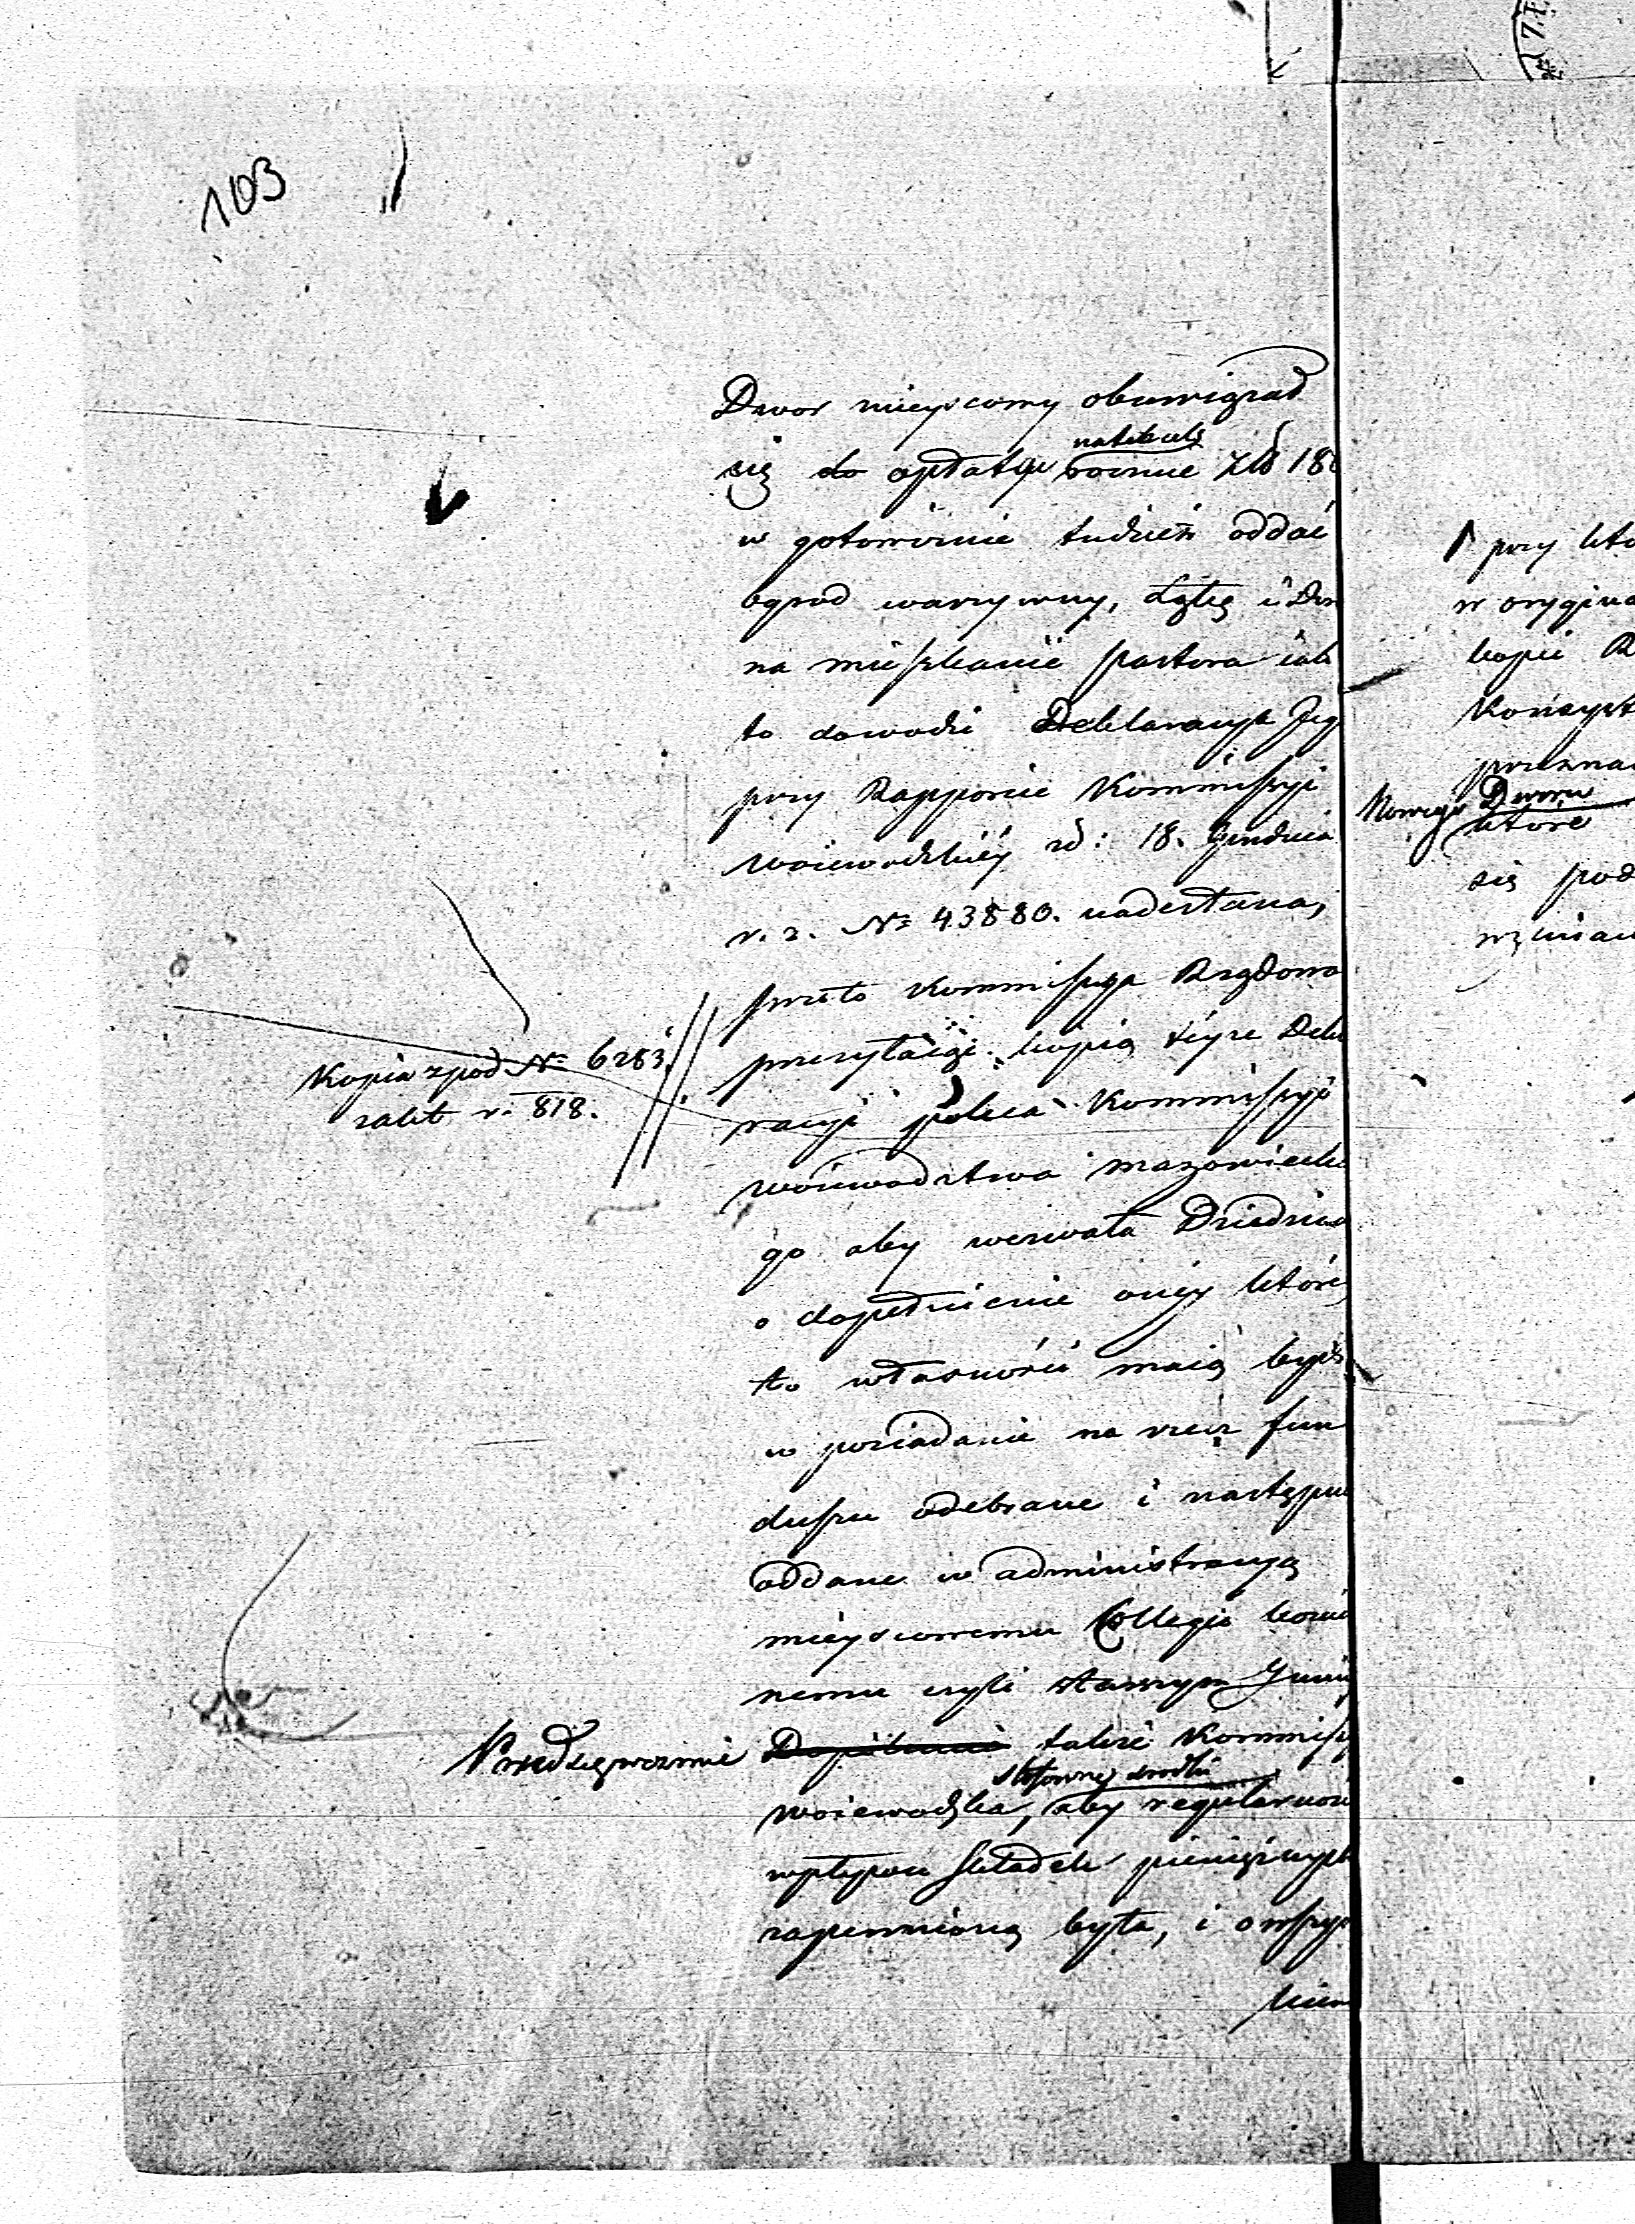 103
Dwor mieyscowy obowiązał
nadal
się do opłaty rocznie Złp 18
w gotowiźnie tudzież oddać
ogrod warzywny, łąkę i Dom
na mieszkanie pastora iak
to dowodzi Deklaracya Jeg
przy Rapporcie Kommissyi
Woiewodzkiéy zd: 18. Grudnia
r. z. No 43880. nadesłana,
przeto Kommissya Rządowa
przesyłaiąc kopią téyże Dekl
racyi poleca Kommissyi
Kopia zpod No 6283.
zakt r. 818.
Woiewodztwa Mazowieckie
go aby wezwała Dziedzica
o dopełnienie onéy które
to własności maią bydź
w posiadanie na rzecz fun
duszu odebrane i następnie
oddane w administracyą
mieyscowemu Collegio kości
nemu czyli starszym Gminy
Przedsięweźmie także Kommiss
stosowne środki
Woiewodzka, aby regularność
wpływu składek pieniężnych
zapewnioną była, i o wszys
kiem
przy
w orygina
kopii
Konsyst
przezna
Nowego Dworu
które
się pod